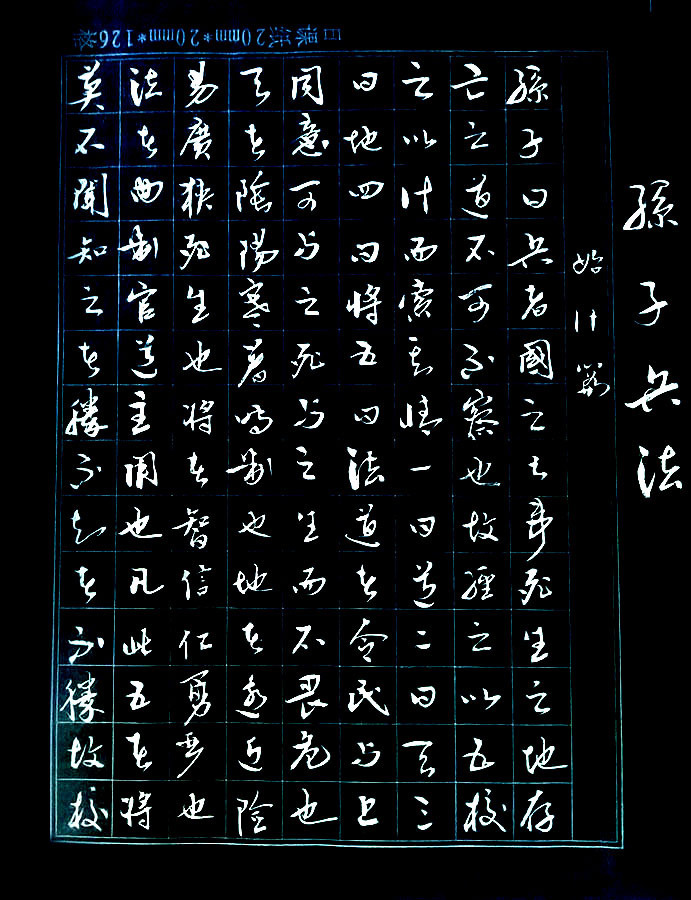 孫子兵法
始计篇
孫子曰兵者國之大事死生之地存
亡之道不可不察也故經之以五校
之以计而索其情一曰道二曰天三
曰地四曰將五曰法道者令民与上
同意可与之死与之生而不畏危也
天者陰陽寒暑時制也地者遠近險
易廣狹死生也將者智信仁勇嚴也
法者曲制官道主用也凡此五者將
莫不聞知之者勝不知者不勝故校
20mm*20mm*126格